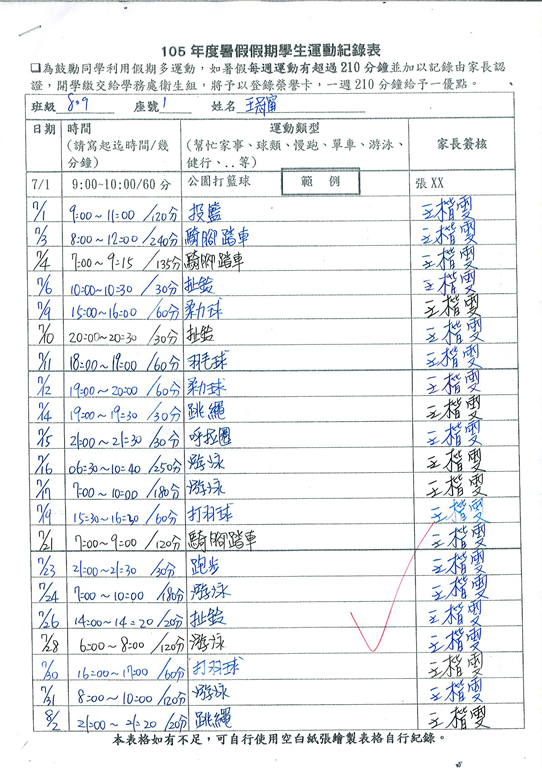 105 年度暑假假期學生運動紀錄表
❑為鼓勵同學利用假期多運動，如暑假每週運動有超過 210 分鐘並加以記錄由家長認
證，開學繳交給學務處衛生組，將予以登錄榮譽卡，一週 210 分鐘給予一優點。
班級 809 座號 1 姓名 王
日期 時間 運動類型 家長簽核
(請寫起迄時間/幾分鐘) (幫忙家事、球類、慢跑、單車、游泳、健行、..等)
7/1 9:00~10:00/60 分 公園打籃球 範例 張 XX
7/1 9:00~11:00/120分 投籃 王楷雯
7/3 8:00~12:00/240分 騎腳踏車 王楷雯
7/4 7:00~9:15/135分 騎腳踏車 王楷雯
7/6 10:00~10:30/30分 扯鈴 王楷雯
7/9 15:00~16:00/60分 柔力球 王楷雯
7/10 20:00~20:30/30分 扯鈴 王楷雯
7/11 18:00~19:00/60分 羽毛球 王楷雯
7/12 19:00~20:00/60分 柔力球 王楷雯
7/14 19:00~19:30/30分 跳繩 王楷雯
7/15 21:00~21:30/30分 呼拉圈 王楷雯
7/16 06:30~10:40/250分 游泳 王楷雯
7/17 7:00~10:00/180分 游泳 王楷雯
7/19 15:30~16:30/60分 打羽球 王楷雯
7/21 7:00~9:00/120分 騎腳踏車 王楷雯
7/23 21:00~21:30/30分 跑步 王楷雯
7/24 7:00~10:00/180分 游泳 王楷雯
7/26 14:00~14:20/20分 扯鈴 王楷雯
7/28 6:00~8:00/120分 游泳 王楷雯
7/30 16:00~17:00/60分 打羽球 王楷雯
7/31 8:00~10:00/120分 游泳 王楷雯
8/2 21:00~21:20/20分 跳繩 王楷雯
本表格如有不足，可自行使用空白紙張繪製表格自行紀錄。